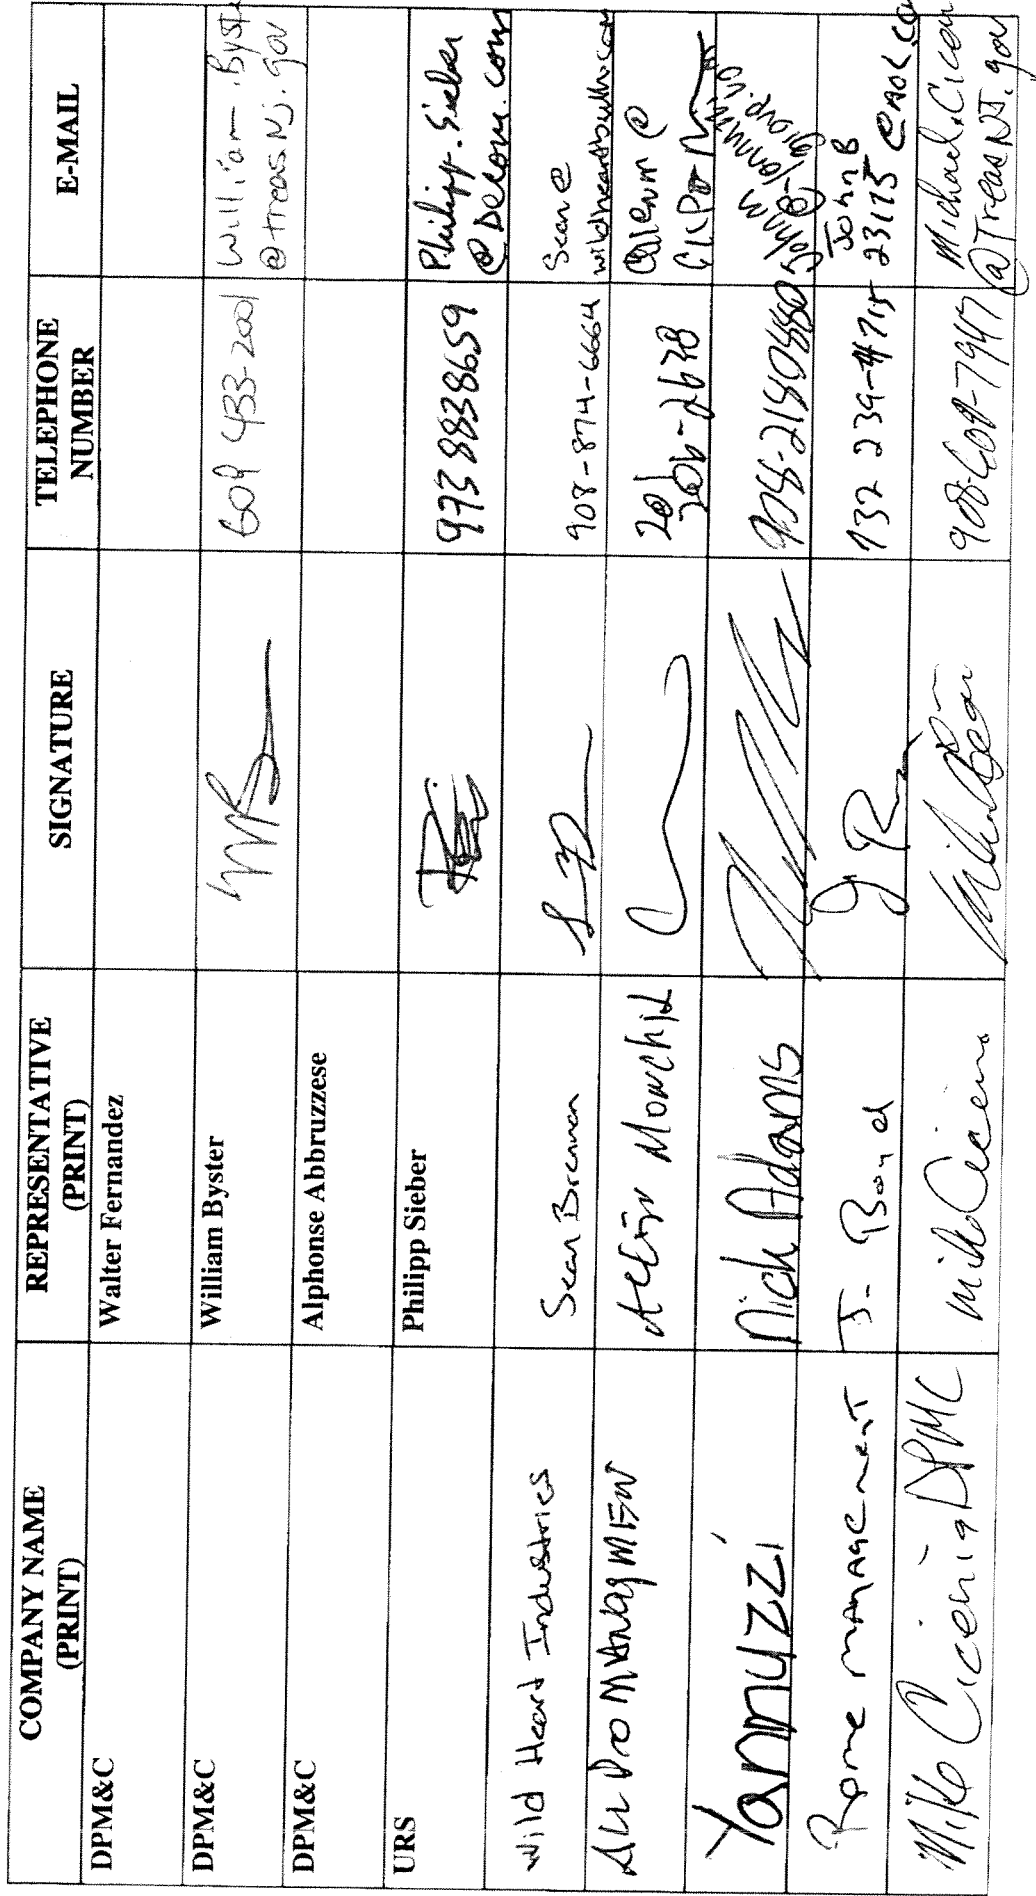 COMPANY NAME (PRINT) REPRESENTATIVE (PRINT) SIGNATURE TELEPHONE NUMBER E-MAIL
DPM&C Walter Fernandez
DPM&C William Byster 609 433-2001 William.Byste
@treas.nj.gov
DPM&C Alphonse Abbruzzese
URS Philipp Sieber 973 8838659 Philipp.Sieber
@aecom.com
Wild Heart Industries Sean Brennan 908-874-6664 Sean@
All Pro 201
Yannuzzi Nick Adams
Rome management J- Boyd 732 239-4715 JohnB
23175 @AOL.co
Mike Cicenia DPMC Mike Cicenia 908-601-7947 Michael.Cicen
@Treas.NJ.gov